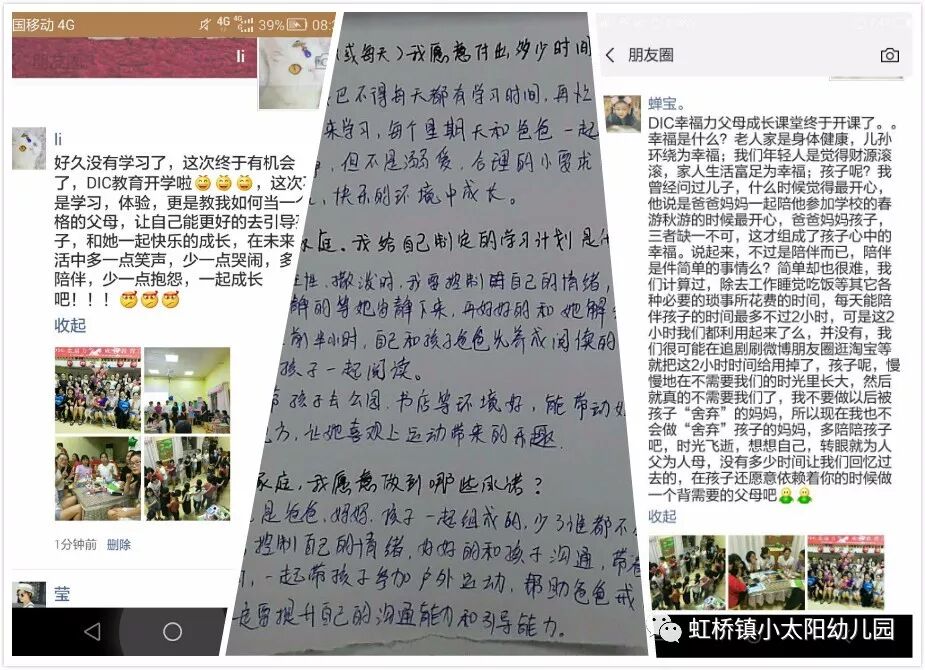 国移动 4G
4G
39%
08:
朋友圈
li
li
好久没有学习了，这次终于有机会
了，DIC教育开学啦😄😄😄，这次
是学习，体验，更是教我如何当一
格的父母，让自己能更好的去引导
子，和她一起快乐的成长，在未来
活中多一点笑声，少一点哭闹，多
陪伴，少一点抱怨，一起成长
吧！！！
收起
1分钟前 删除
莹
(或每天)我愿意付出多少时间
巴不得每天都有学习时间，再忙
来学习，每个星期天和爸爸一起
，但不是溺爱，合理的小要求
快乐的环境中成长。
家庭，我给自己制定的学习计划是什
任性、撒泼时，我要控制时自己的情绪，
静的等她安静下来，再好好的和她解
前半小时，自己和孩子爸爸先养成阅读的
孩子一起阅读。
孩子去公园、书店等环境好，能带动她
方，让她喜欢上运动带来的乐趣
家庭，我愿意做到哪些承诺？
是爸爸，妈妈，孩子一起组成的，少了谁都不
控制自己的情绪，好好的和孩子沟通，带着
，一起带孩子参加户外运动，帮助爸爸戒
定要提升自己的沟通能力和引导能力。
朋友圈
蝉宝。
DIC幸福力父母成长课堂终于开课了。。
幸福是什么？老人家是身体健康，儿孙
环绕为幸福；我们年轻人是觉得财源滚
滚，家人生活富足为幸福；孩子呢？我
曾经问过儿子，什么时候觉得最开心，
他说是爸爸妈妈一起陪他参加学校的春
游秋游的时候最开心，爸爸妈妈孩子，
三者缺一不可，这才组成了孩子心中的
幸福。说起来，不过是陪伴而已，陪伴
是件简单的事情么？简单却也很难，我
们计算过，除去工作睡觉吃饭等其它各
种必要的琐事所花费的时间，每天能陪
伴孩子的时间最多不过2小时，可是这2
小时我们都利用起来了么，并没有，我
们很可能在追剧刷微博朋友圈逛淘宝等
就把这2小时时间给用掉了，孩子呢，慢
慢地在不需要我们的时光里长大，然后
就真的不需要我们了，我不要做以后被
孩子“舍弃”的妈妈，所以现在我也不
会做“舍弃”孩子的妈妈，多陪陪孩子
吧，时光飞逝，想想自己，转眼就为人
父为人母，没有多少时间让我们回忆过
去的，在孩子还愿意依赖着你的时候做
一个背需要的父母吧
收起
虹桥镇小太阳幼儿园